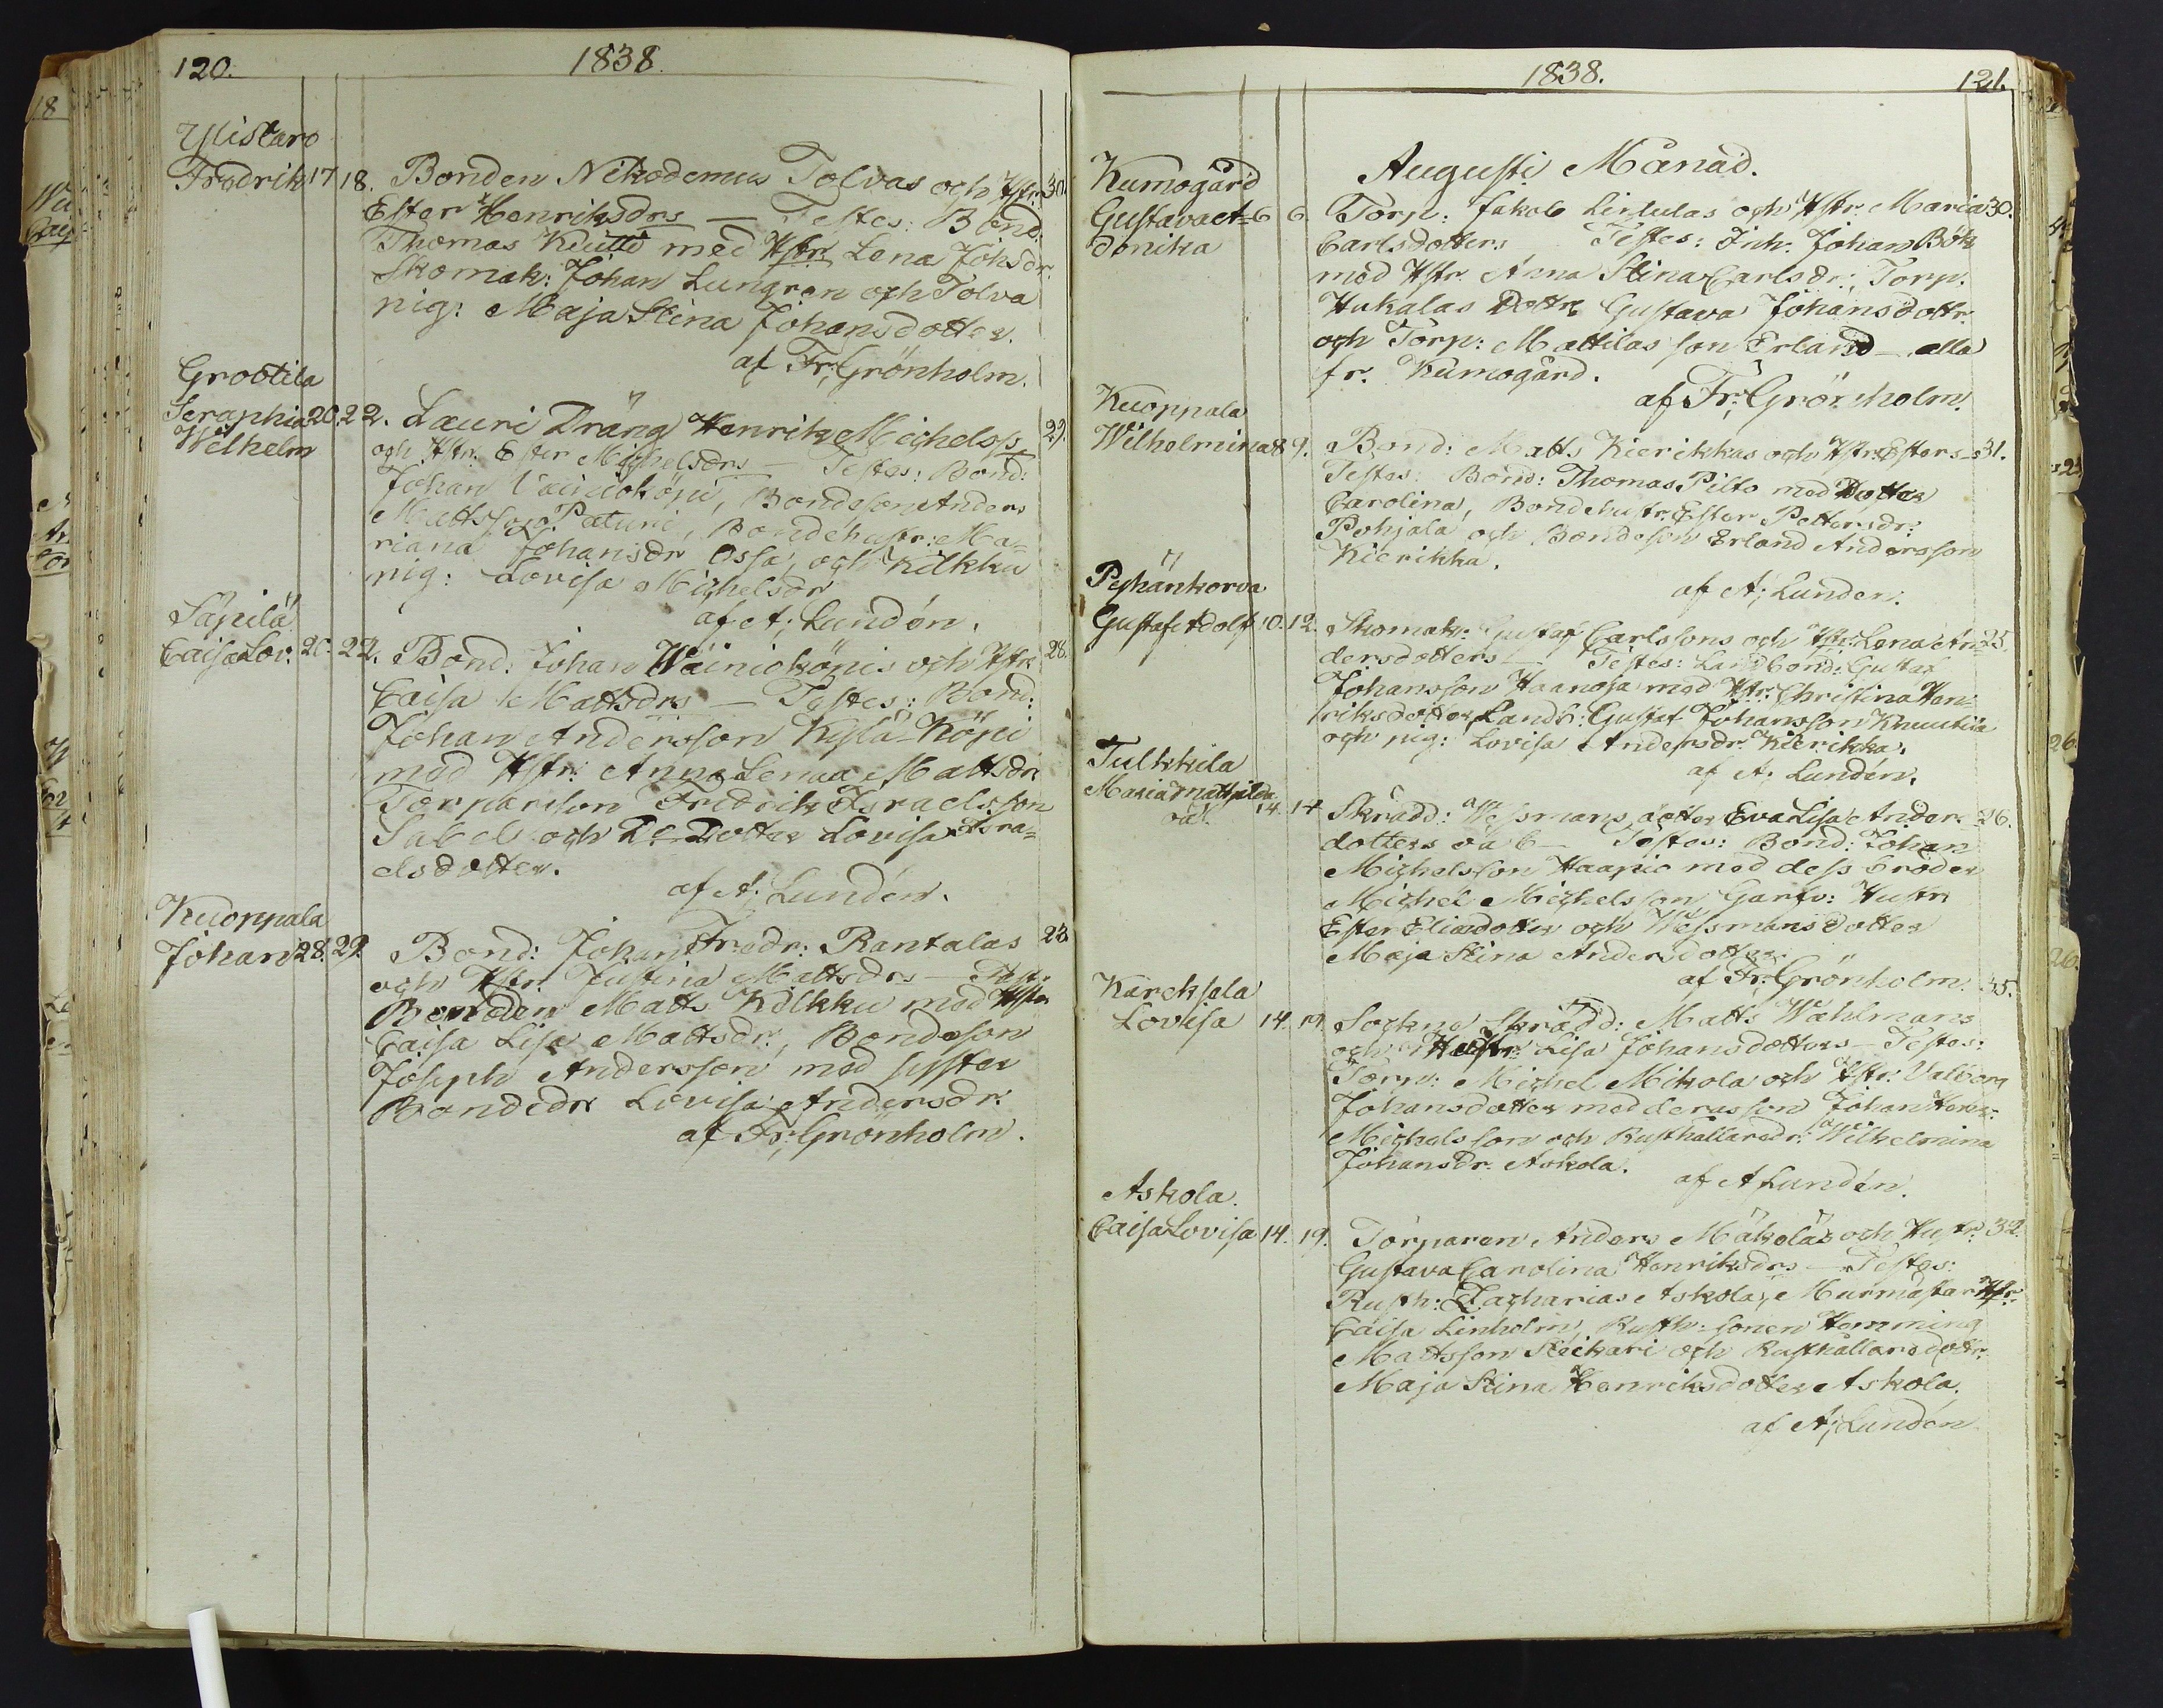 120.
1838.
Ylistaro
Fredrik 17 18. Bonden Nikodemus Tolvas och Hstr. 30.
Ester Henriksdrs — Testes: Bond:
Thomas Knutti med Hstr. Lena Johsdr.
Skomak: Johan Lungren och Tolva
pig: Maja Stina Johansdotter.
af Fr; Grönholm.
Grootila
Seraphia 20. 22. Lauri Dräng Henrik Michelss 29.
Wilhelm
och Hstr. Ester Michelsdrs — Testes: Bond:
Johan Vainioköpi, Bondeson Anders
Mattsson Paturi, Bondehustr: Ma=
riana Johansdr Ossa, och Kilkku
pig: Lovisa Michelsdr
af A; Lundén.
Säpilä
Caisa Lov. 20. 22. Bond: Johan Wäinioköpis och Hstr 28.
Caisa Mattsdrs — Testes: Bond:
Johan Andersson Kylä-Köpi
med Hstr: Anna Lena Mattsdr
Torparson Fredrik Israelsson
Sabels och Do Dotter Lovisa Isra=
elsdotter.
af A; Lundén.
Kuoppala
Johan 28. 29. Bond: Johan Fredr: Rantalas 23.
och Hstr. Justina Mattsdrs — Test:
Bonden Matts Kilkku med Hstr
Caisa Lisa Mattsdr., Bondeson
Joseph Andersson med syster
Bondedr Lovisa Andersdr.
af Fr; Grönholm.
1838.
121.
Augusti Månad.
Kumogård
Gustava A= 6 6. Torp: Jakob Lirulas och Hstr. Maria 30.
donika
Carlsdotters Testes: Inh: Johan Bök
med Hstr. Anna Stina Carlsdr:, Torp.
Hukalas Dottr Gustava Johansdottr.
och Torp: Mattilas son Erland — alla
fr. Kumogård.
af Fr; Grönholm.
Kuoppala
Wilhelmina 8 9. Bond: Matts Kierikkas och Hstr. Esters — 31.
Testes: Bond: Thomas Pilto med Dotter
Carolina, Bondehustr. Ester Pettersdr:
Pohjala och Bondeson Erland Andersson
Kierikka.
af A; Lunden.
Pyhänkorva
Gustaf Adolf 10. 12. Skomak: Gustaf Carlssons och Hstr. Lena An= 25.
dersdotters — Testes: Landbond: Gustaf
Johansson Haanoja med Hstr. Christina Hen=
riksdotter, Landb: Gustaf Johansson Knuutila
och pig: Lovisa Andersdr. Kierikka.
af A; Lundén.
Tulkkila
Maria Mathilda
oä. 14. 14 Skradd: Wessmans dotter Eva Lisa Anders= 26.
dotters oä b — Testes: Bond: Johan
Michelsson Haapio med dess broder
Michel Michelsson Garfv: Hustr
Ester Eliedotter och Wessmans Dotter
Maja Stina Andersdotter.
af Fr; Grönholm.
Kareksela
Lovisa 14. 19. Sockne Skrädd: Matts Wahlmans 35.
och Hustr: Lisa Johansdotters — Testes:
Torp: Michel Mikola och Hstr. Valborg
Johansdotter med deras son Johan Henr:
Michelsson och Rusthållaredr: Wilhelmina
Johansdr. Askola.
af A Lundén.
Askola.
Caisa Lovisa 14. 19. Torparen Anders Mäkeläs och Hustr. 32.
Gustava Carolina Henriksdrs — Testes:
Rusth: Zacharias Askola, Murmästar Hstr.
Caisa Linholm, Rusth=sonen Hemming
Mattsson Sieckari och Rusthållaredottr.
Maja Stina Henriksdotter Askola.
af A; Lundén